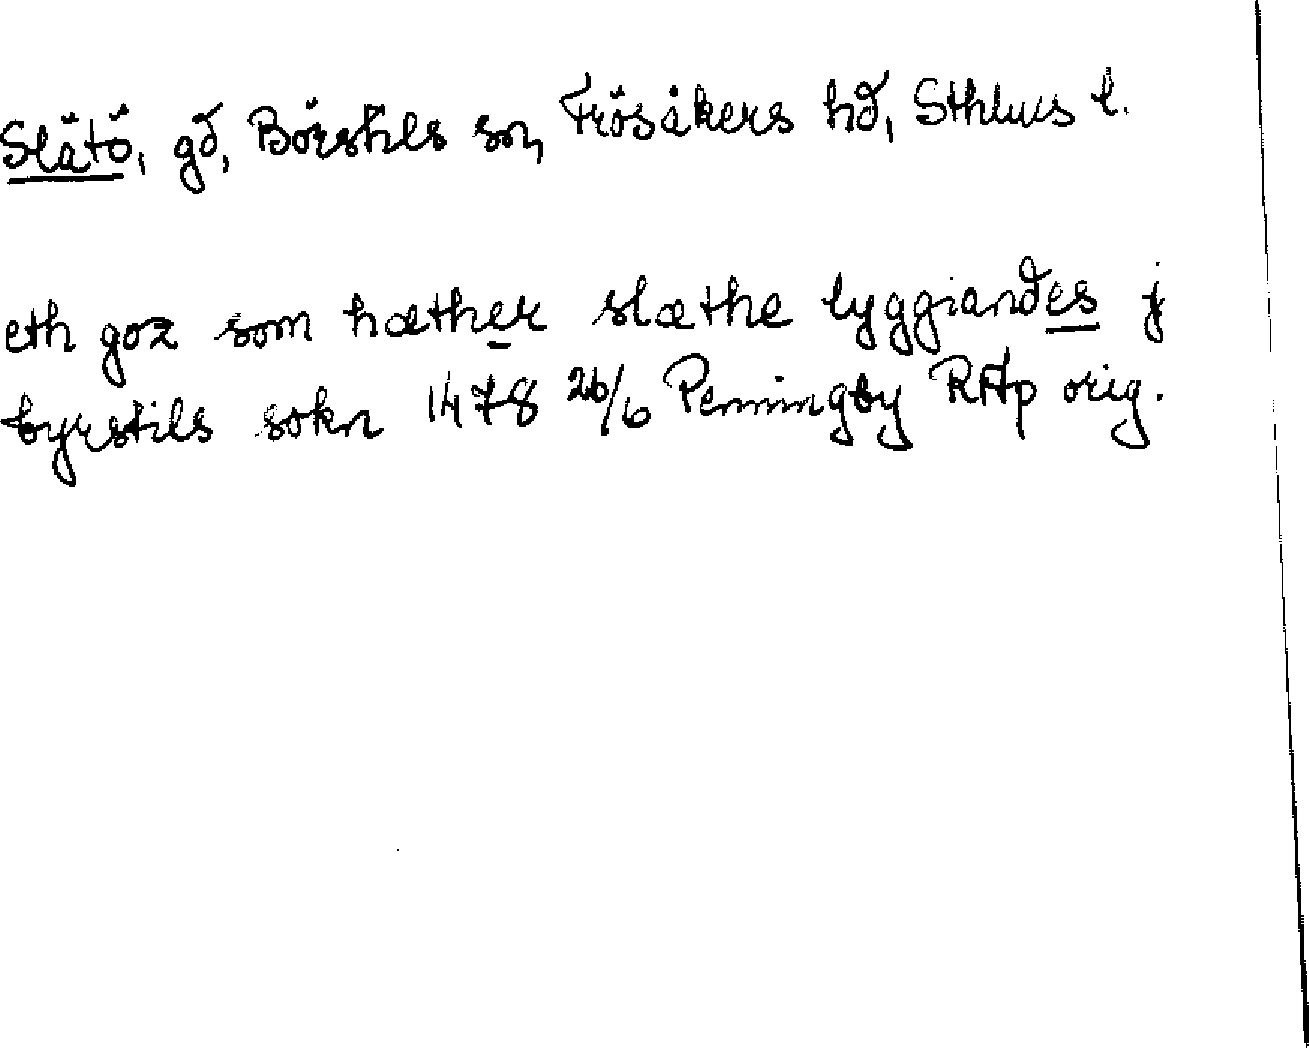 Slätö, gd, Börstils sn, Frösåkers hd, Sthlms l.
eth goz som hæther slæthe lyggiandes j
byrstils sokn 1478 26/6 Penningby RAp orig.